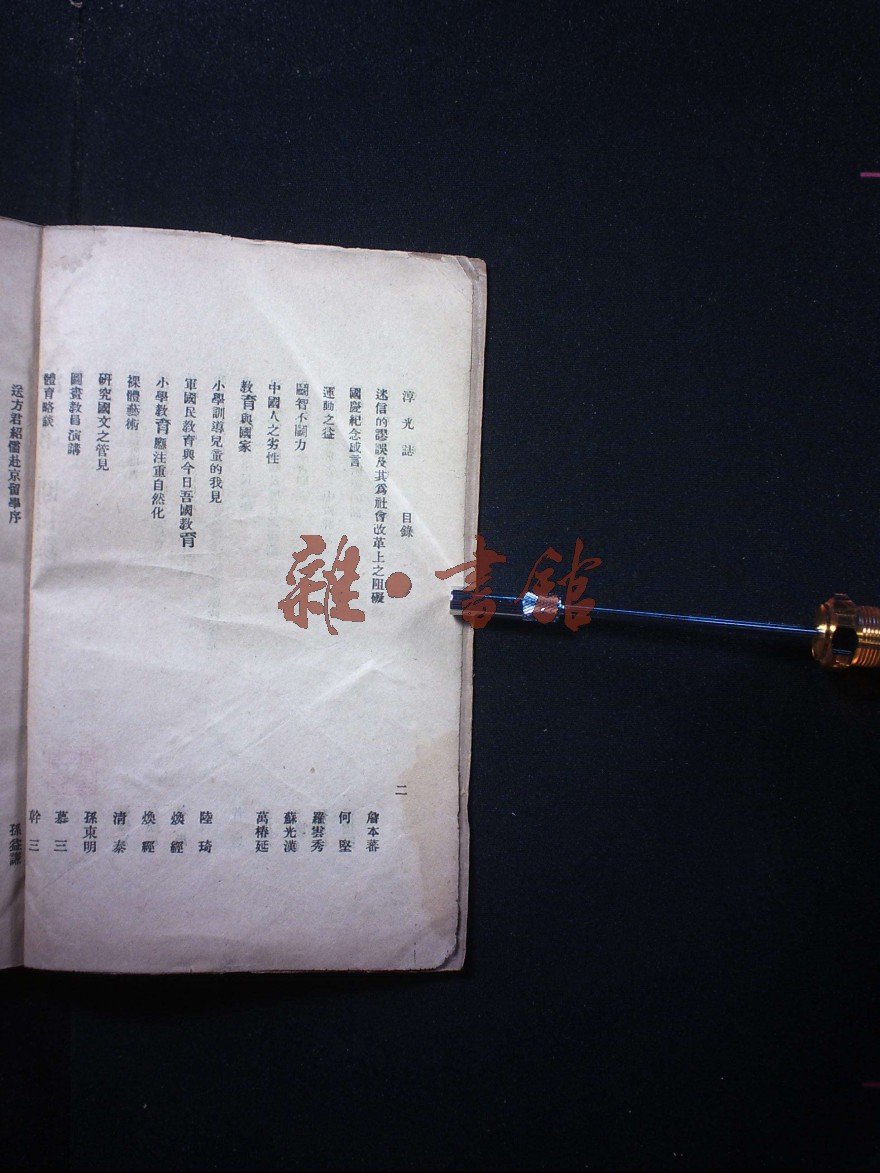 淳光誌 目錄 二
迷信的謬誤及其爲社會改革上之阻礙 詹本蕃
國慶紀念感言 何堅
運動之益 羅雲秀
鬬智不鬬力 蘇光漢
中國人之劣性 萬椿延
教育與國家
小學訓導兒童的我見 陸琦
軍國民教育與今日吾國教育 煥經
小學教育應注重自然化 煥經
裸體藝術 清泰
研究國文之管見 孫東明
圖畫教員演講 慕三
體育略談 幹三
送方君紹儒赴京留學序 孫益謙
雜·書館